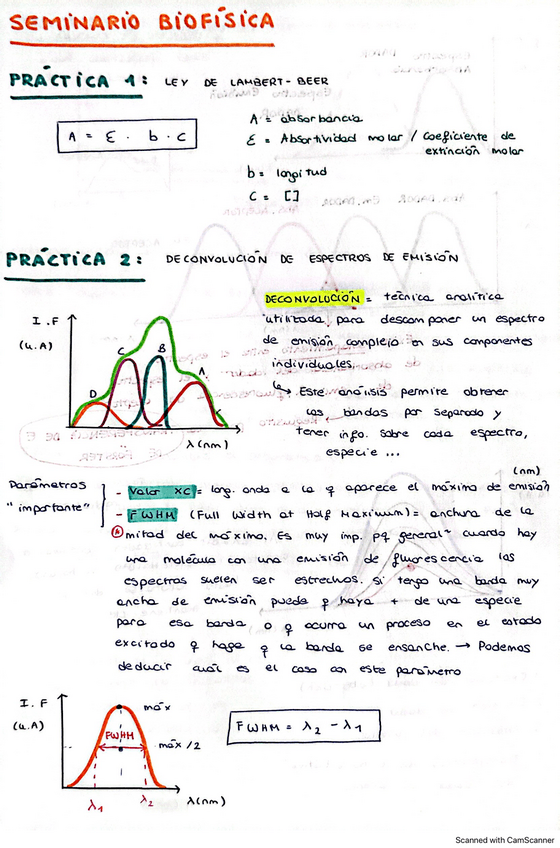 SEMINARIO BIOFÍSICA
PRÁCTICA 1: LEY DE LAMBERT-BEER
A = ε · b · c
A = absorbancia
ε = Absortividad molar / Coeficiente de
extinción molar
b = longitud
C = []
PRÁCTICA 2: DECONVOLUCIÓN DE ESPECTROS DE EMISIÓN
DECONVOLUCIÓN = técnica analítica
utilizada para descomponer un espectro
de emisión complejo en sus componentes
individuales.
↳ Este análisis permite obtener
las bandas por separado y
tener info. sobre cada espectro,
especie ...
I.F
(u.A)
D
C
B
A
λ(nm)
(nm)
Parámetros
"importante"
- Valor XC = long. onda a la q aparece el máximo de emisión
- FWHM (Full Width at Half Maximum) = anchura de la
mitad del máximo. Es muy imp. pq general+ cuando hay
una molécula con una emisión de fluorescencia las
espectros suelen ser estrechos. Si tengo una banda muy
ancha de emisión puede q haya + de una especie
para esa banda o q ocurra un proceso en el estado
excitado q haga q la banda se ensanche. → Podemos
deducir cuál es el caso con este parámetro
I.F
(u.A)
máx
FWHM
máx/2
λ1
λ2
λ(nm)
FWHM = λ2 - λ1
Scanned with CamScanner